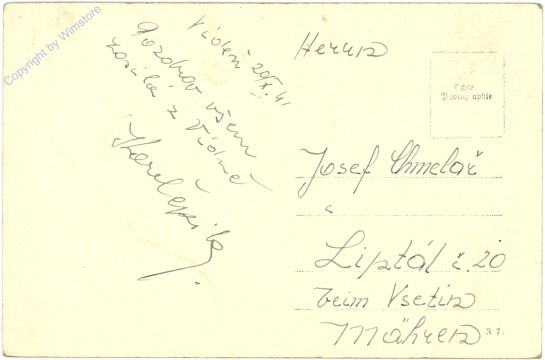 Copyright by Wimstore
Vídeň 20/X. 41
Pozdrav všem
zasílá z Vídně
Herrn
Echte
Photographie
Josef Chmelař
"
Liptál č. 20
beim Vsetin
Mähren